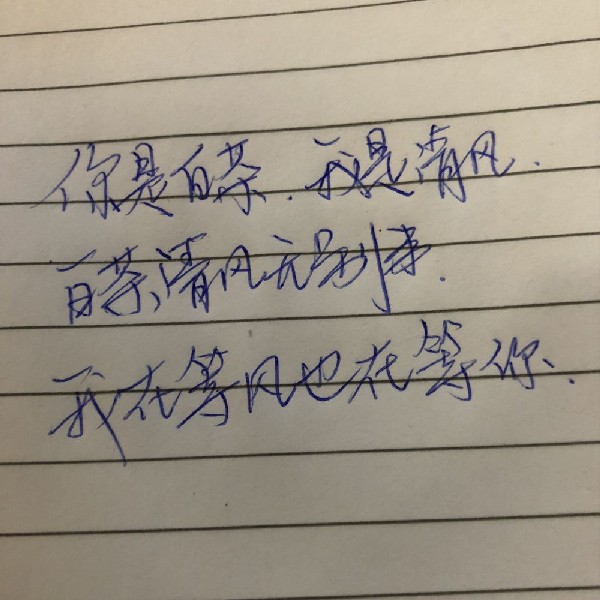 你是白茶.我是清风.
白茶清风无别事.
我在等风也在等你.